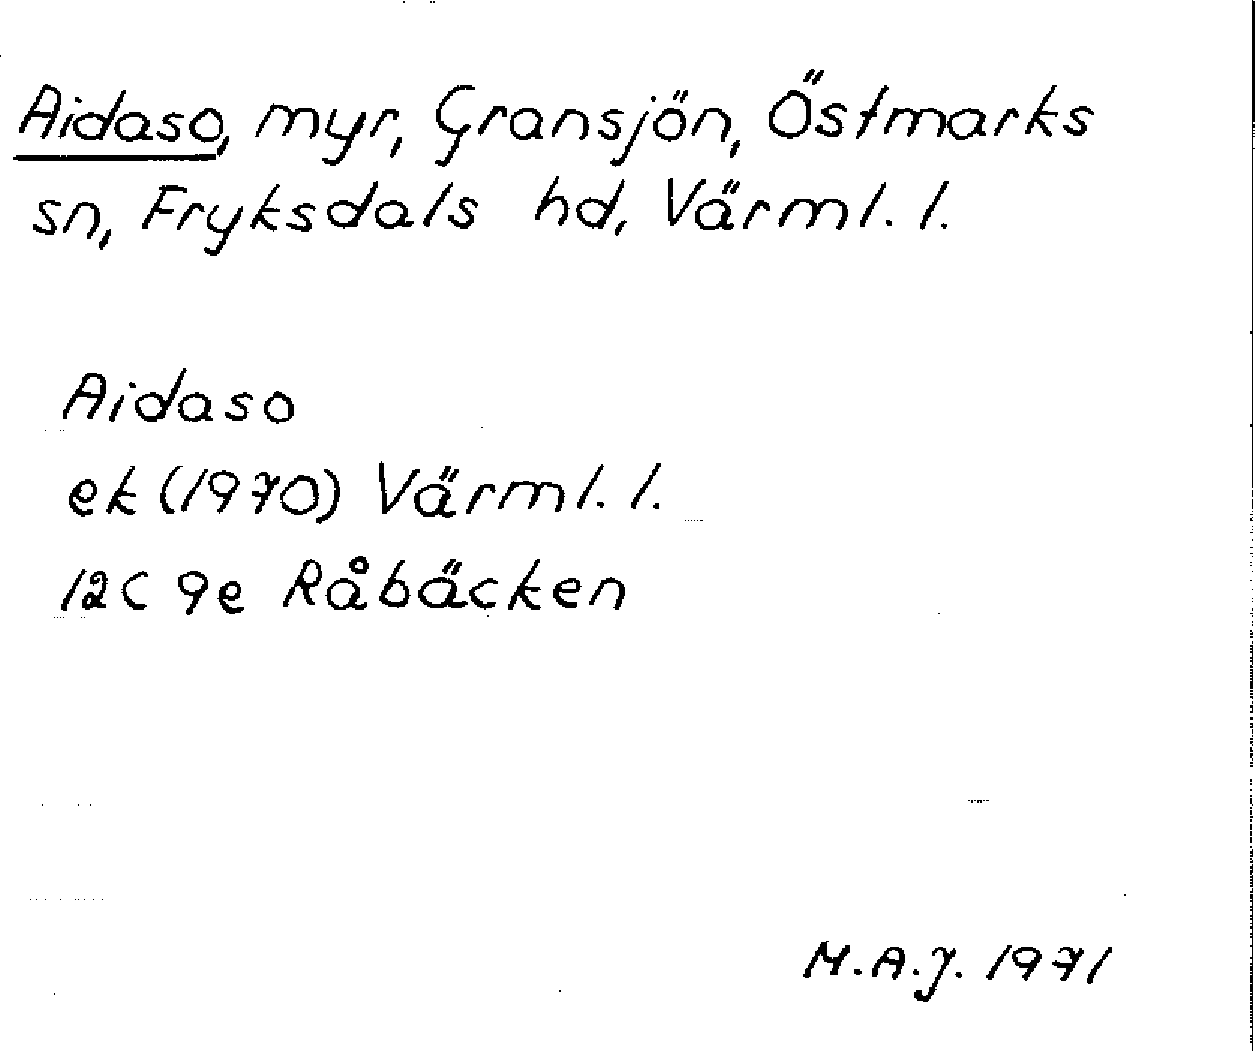 Aidaso, myr, Gransjön, Östmarks
sn, Fryksdals hd, Värml. l.
Aidaso
ek (1970) Värml. l.
12C 9e Råbäcken
M.A.J. 1971